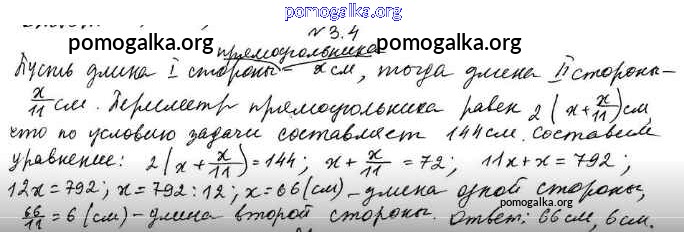 pomogalka.org
№3.4
pomogalka.org pomogalka.org
прямоугольника
Пусть длина I стороны - x см, тогда длина II стороны -
x/11 см. Периметр прямоугольника равен 2(x+x/11) см,
что по условию задачи составляет 144 см. Составим
уравнение: 2(x+x/11)=144; x+x/11=72; 11x+x=792;
12x=792; x=792:12; x=66 (см) - длина одной стороны,
66/11=6 (см) - длина второй стороны. Ответ: 66 см, 6 см.
pomogalka.org pomogalka.org